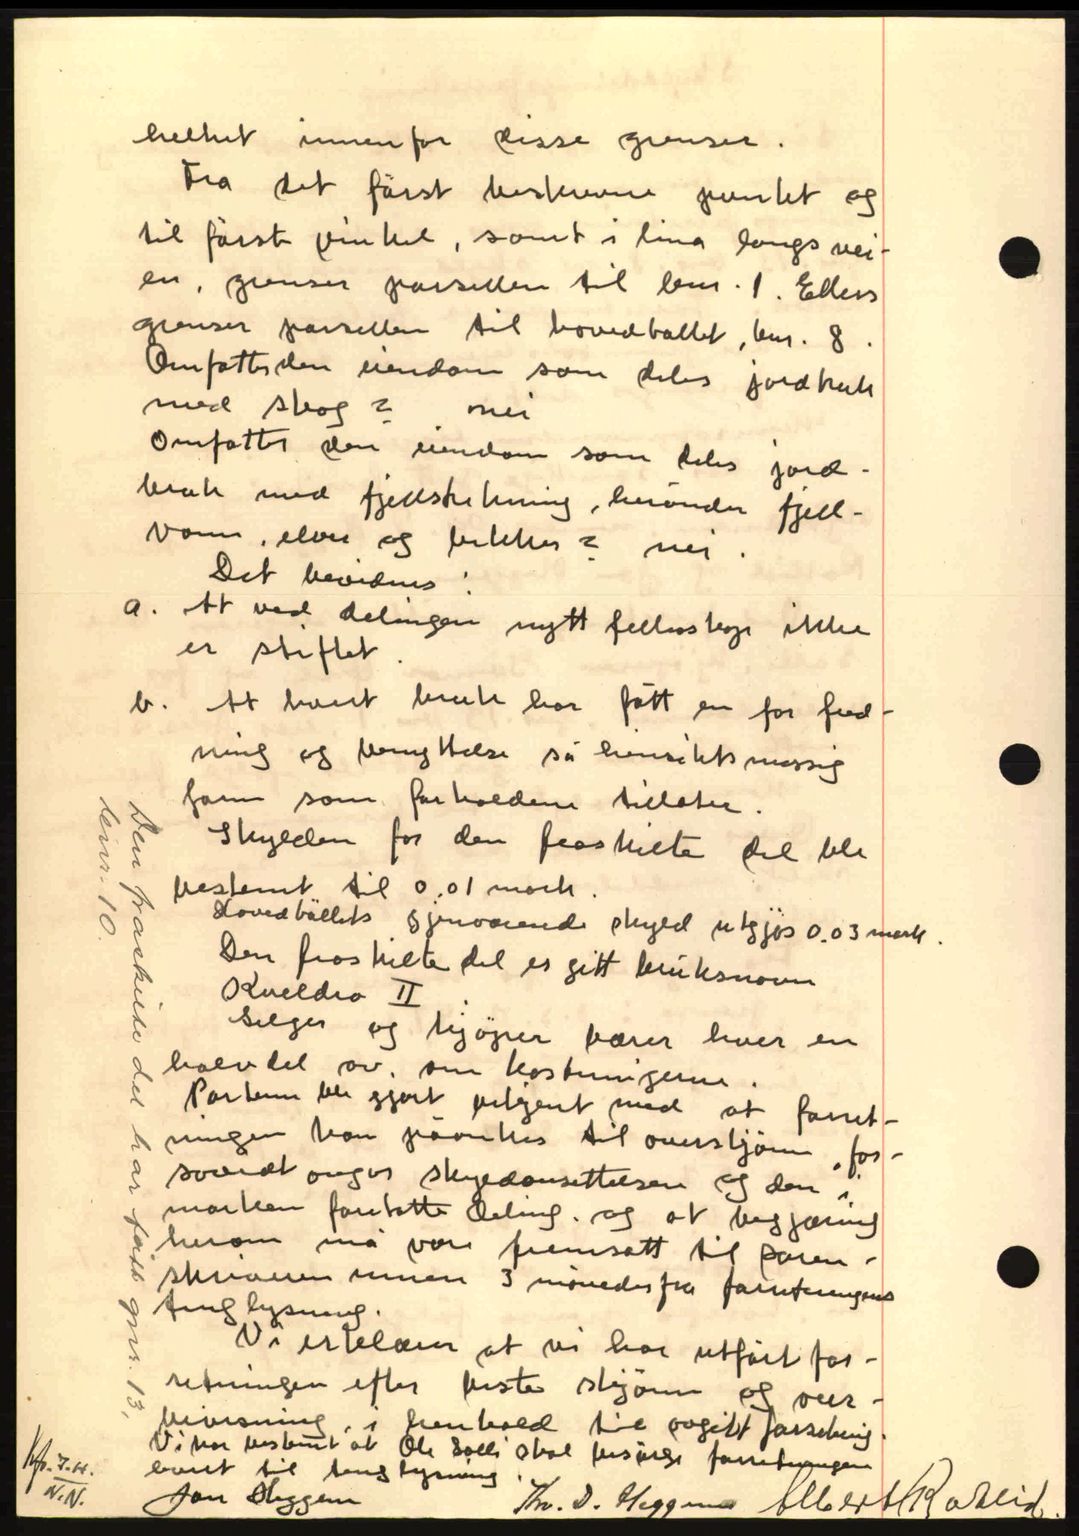 helhet innenfor disse grenser.
Fra det först beskrevne punkt og
til förste vinkel, samt i lina langs vei-
en, grenser parsellen til bnr. 1. Ellers
grenser parsellen til hovedböllet, bnr. 8.
Omfatter den eiendom som deles jordbruk
med skog? nei
Omfatter den eiendom som deles jord-
bruk med fjellstrekning, herunder fjell-
vann, elver og bekker? nei.
Det bevidnes:
a. At ved delingen nytt felleskap ikke
er stiftet.
b. At hvert bruk har fått en for fred-
ning og benyttelse så hensiktsmessig
form som forholdene tillater.
Skylden for den fraskilte del ble
bestemt til 0.01 mark.
Hovedböllets gjenværende skyld utgjör 0.03 mark.
Den fraskilte del er gitt bruksnavn
Kveldro II.
Selger og kjöper bærer hver en
halvdel av omkostningene.
Partene ble gjort bekjent med at forret-
ningen kan påankes til overskjönn, for-
såvidt angår skyldansettelsen og den i
marken foretatte deling, og at begjæring
herom må være fremsatt til soren-
skriveren innen 3 måneder fra forretningens
tinglysning.
Vi erklærer at vi har utfört for-
retningen efter beste skjönn og over-
bevisning, i henhold til avgitt forsikring.
Vi har bestemt at Ole Solli skal besörge forretningen
levert til tinglysning.
Jon Heggem Thv. D. Heggem Albert Røkeid.
Den fraskilte del har fått gnr. 13,
bnr. 10.
N.N.